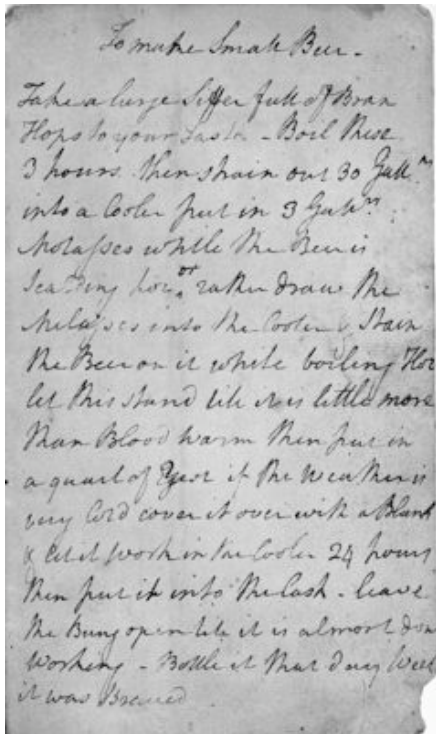 To make Small Beer -
Take a large Siffer full of Bran
Hops to your Taste - Boil these
3 hours. then strain out 30 Gall.ns
into a Cooler put in 3 Gall.ns
Molasses while the Beer is
Scalding hot or rather draw the
Molasses into the Cooler & Strain
the Beer on it while boiling Hot
let this stand till it is little more
than Blood warm then put in
a quart of Yest if the weather is
very Cold cover it over with a Blank
& let it work in the Cooler 24 hours
then put it into the Cask - leave
the Bung open till it is almost done
working - Bottle it that day Week
it was Brewed